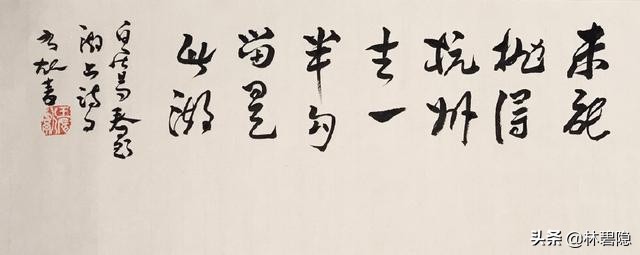 未能
抛得
杭州
去一
半勾
留是
此湖
白居易春题
湖上诗句
书
头条 @林碧隐